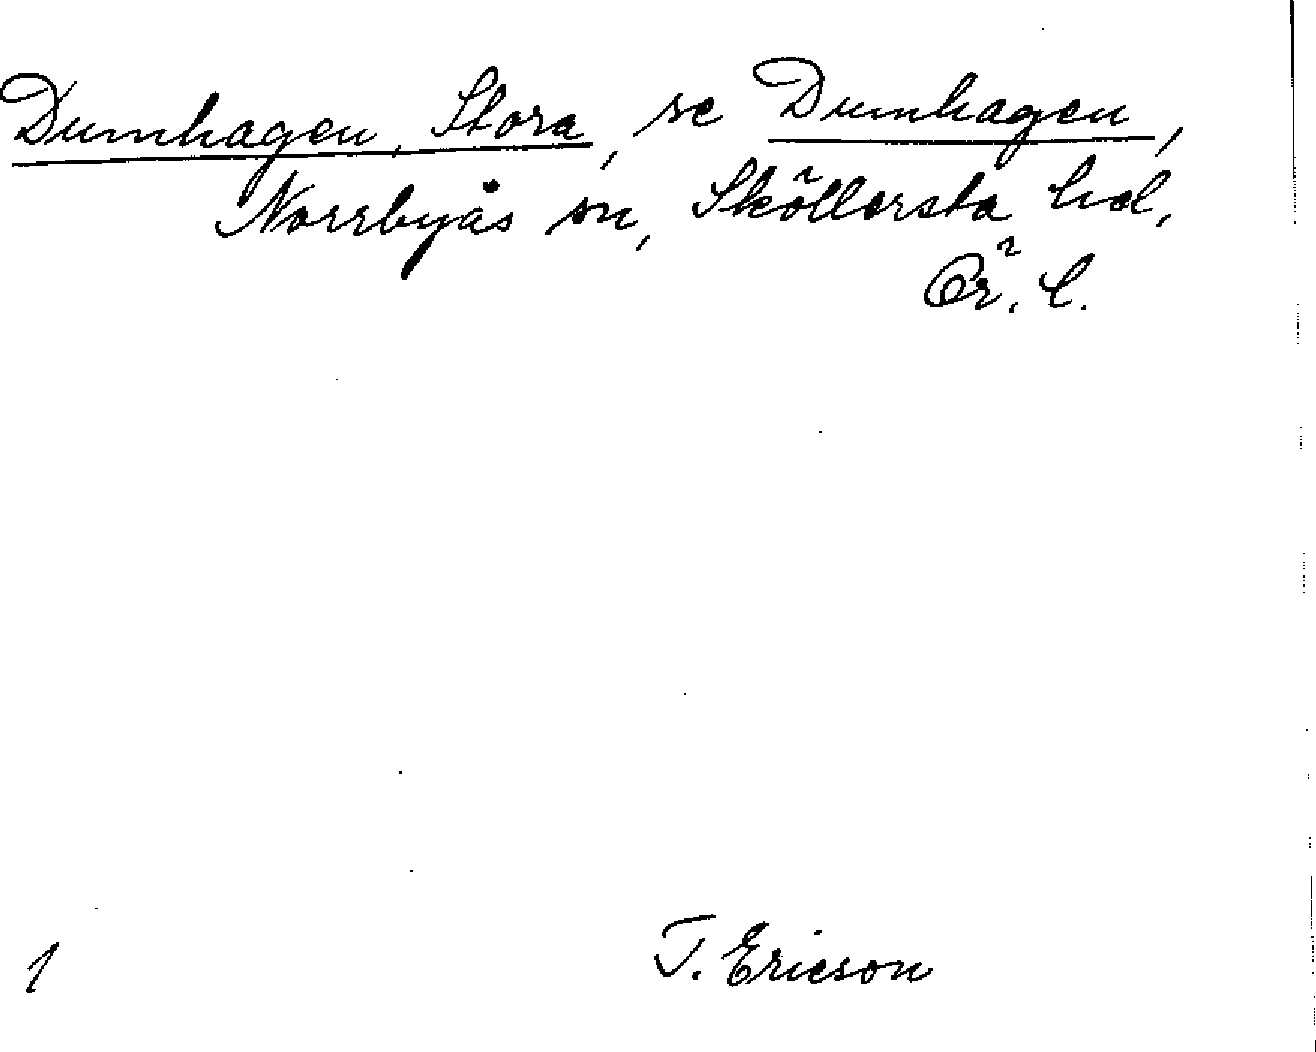 Dumhagen, Stora, se Dumhagen,
Norrbyås sn, Sköllersta hd,
Ör. l.
1 T. Ericson